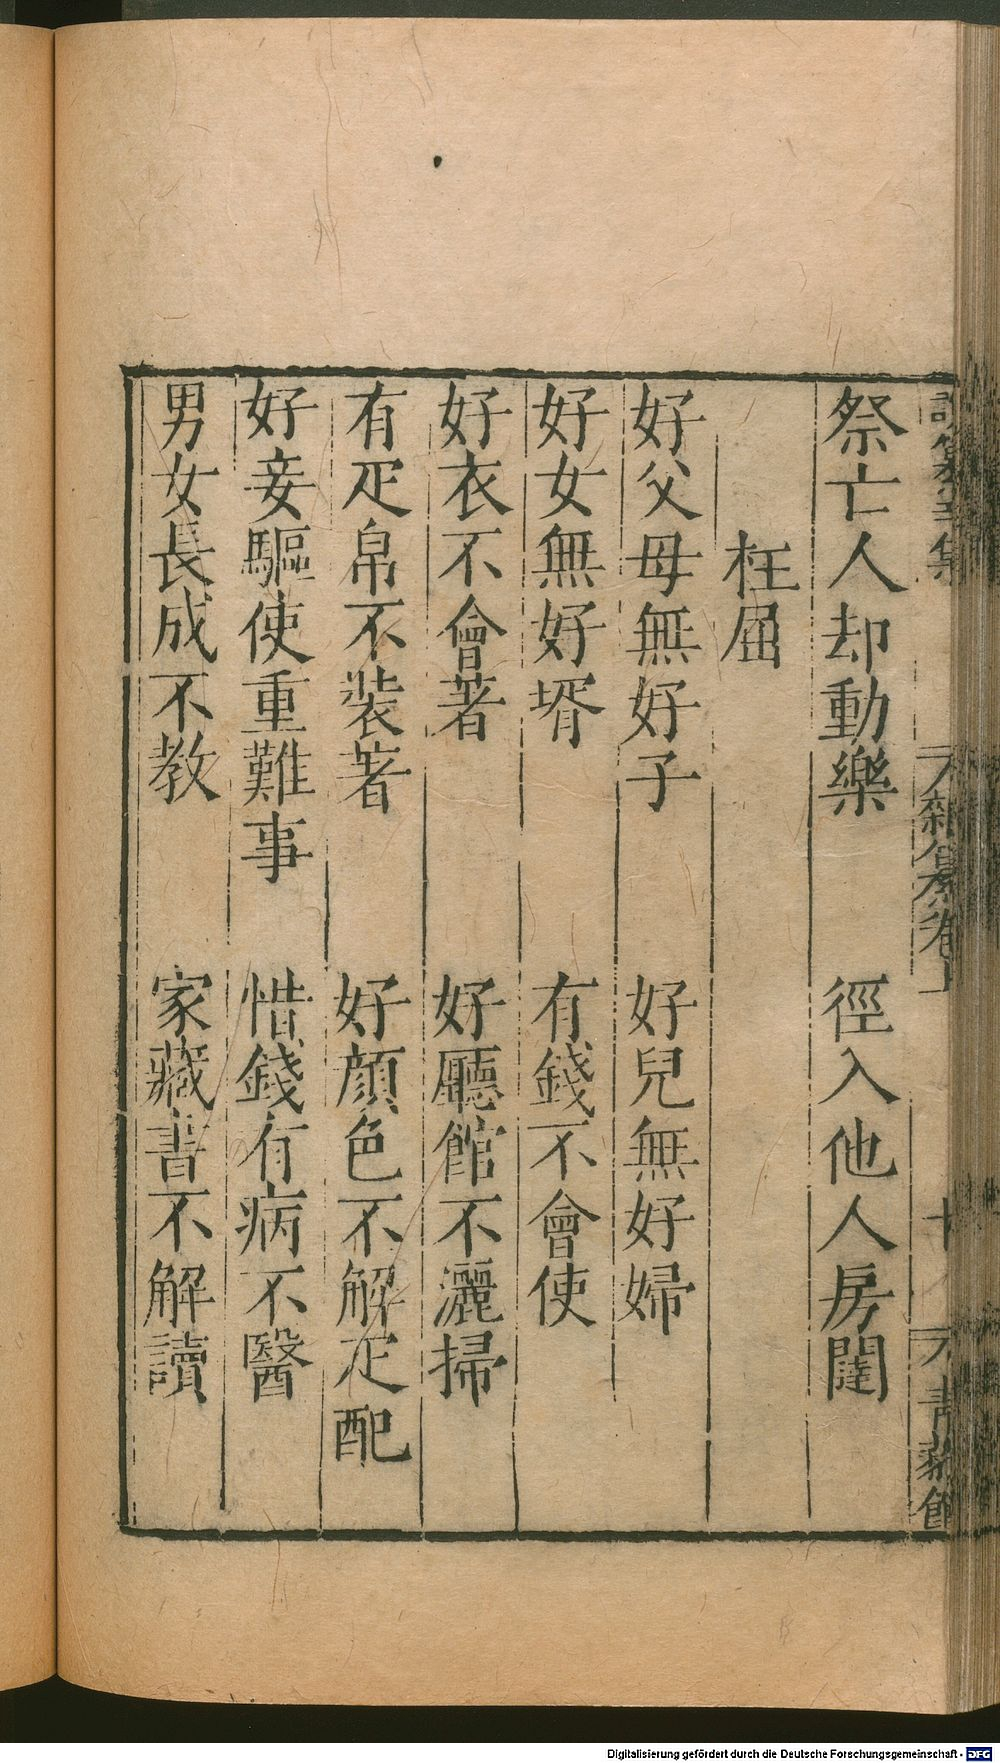 祭亡人却動樂　徑入他人房闥
枉屈
好父母無好子　好兒無好婦
好女無好壻　有錢不會使
好衣不會著　好廳館不灑掃
有疋帛不裝著　好顏色不解疋配
好妾驅使重難事　惜錢有病不醫
男女長成不教　家藏書不解讀
雜纂卷上
十
Digitalisierung gefördert durch die Deutsche Forschungsgemeinschaft - DFG